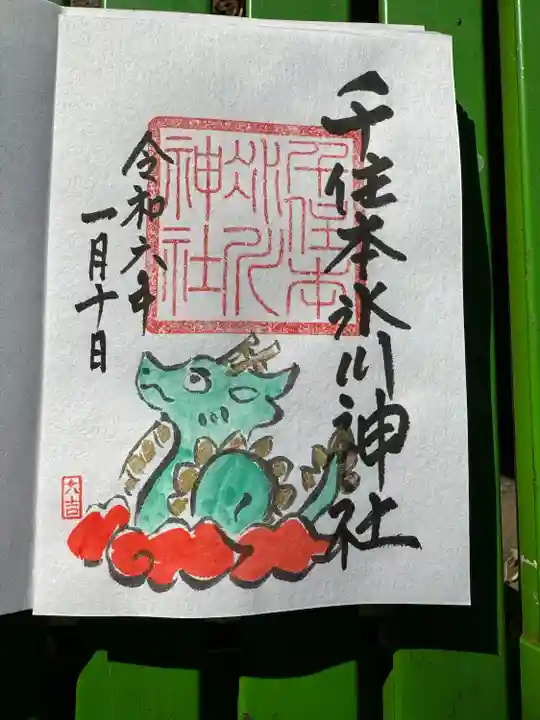 千住本氷川神社
千住本
氷川
神社
令和六年
一月十日
大吉